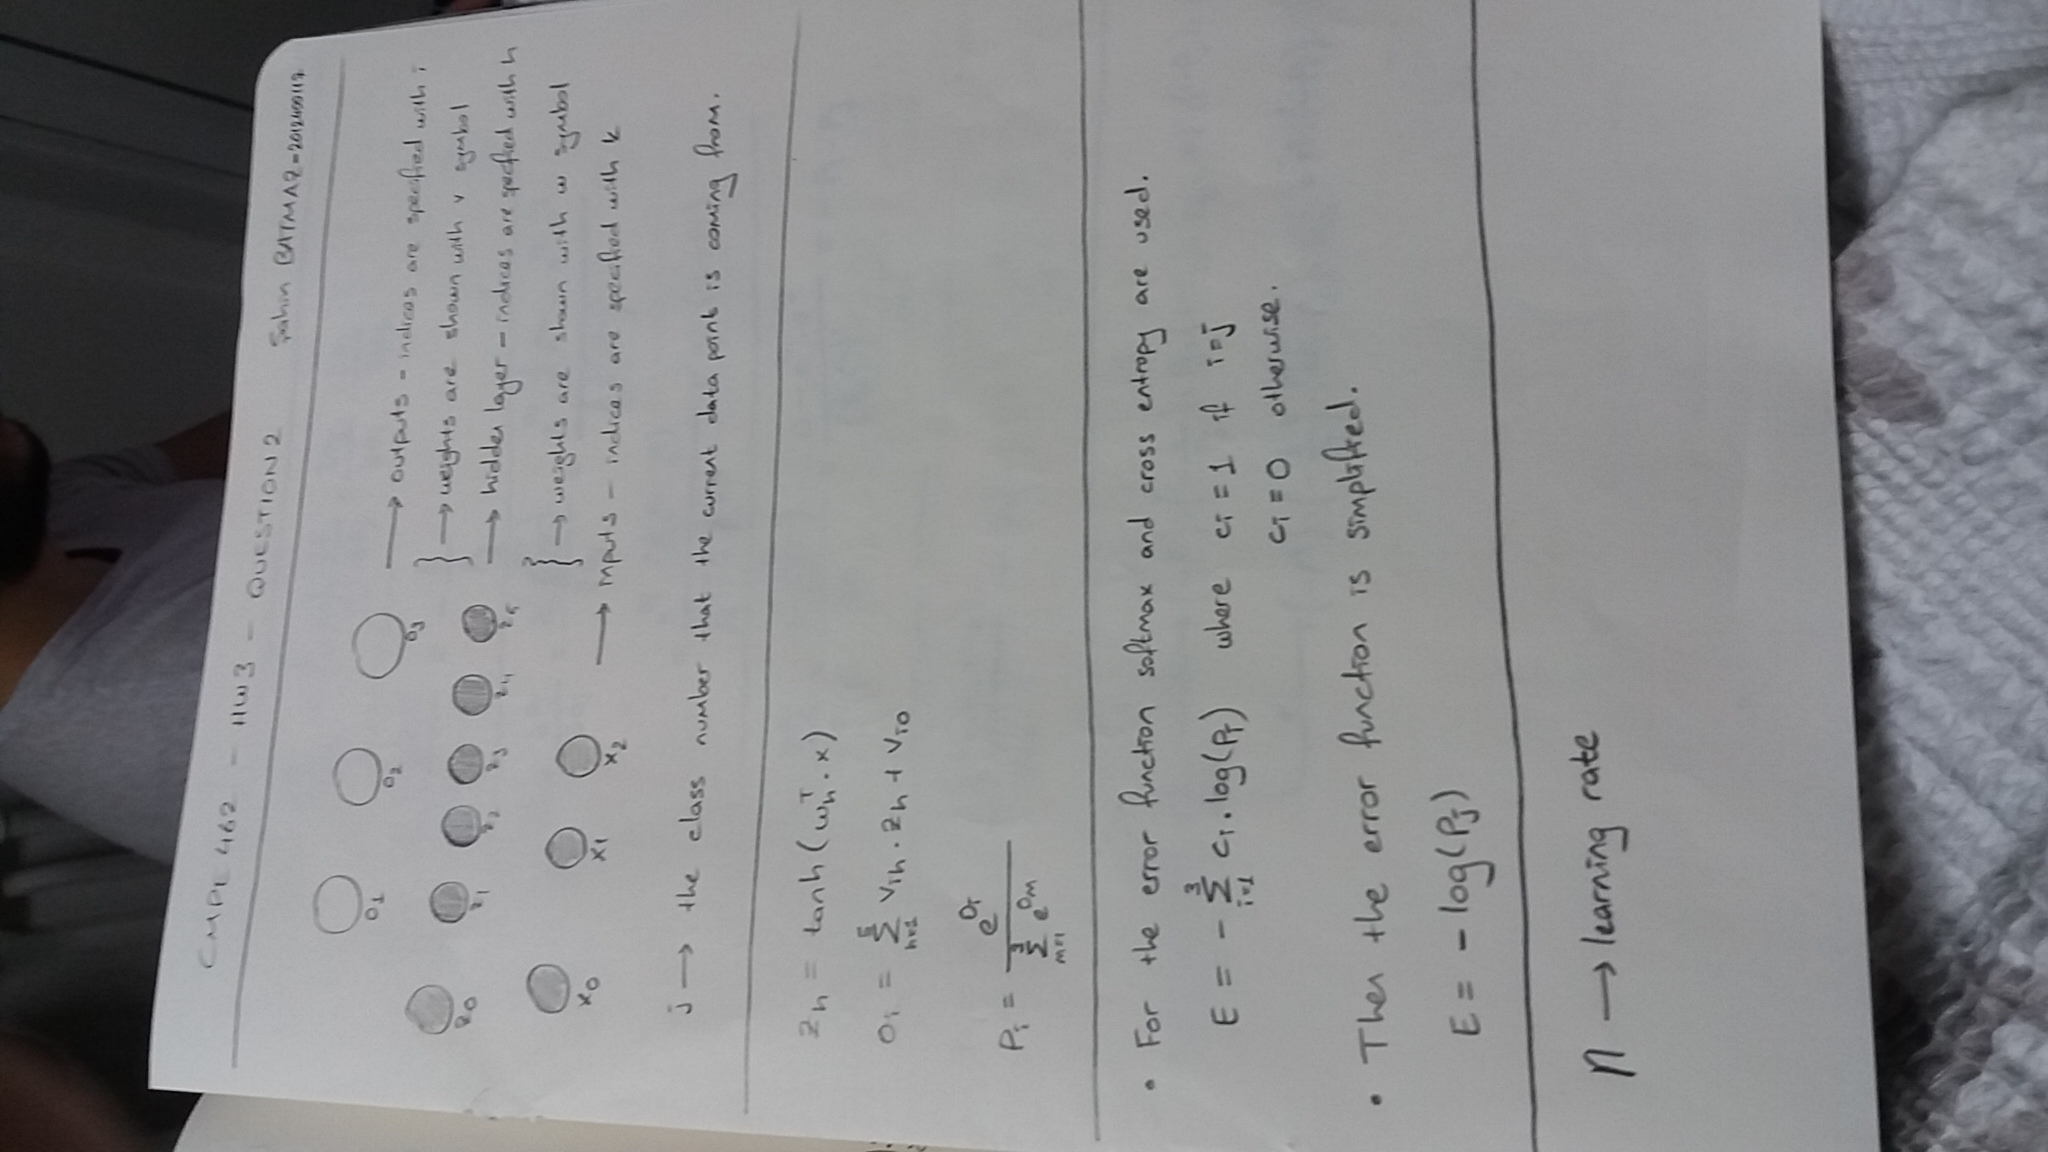 CMPE 462 - HW3 - QUESTION 2 Şahin BATMAZ - 2012400117
o₁ o₂ o₃ → outputs - indices are specified with i
} → weights are shown with v symbol
z₀ z₁ z₂ z₃ z₄ z₅ → hidden layer - indices are specfied with h
} → weights are shown with w symbol
x₀ x₁ x₂ → inputs - indices are specified with k
j → the class number that the current data point is coming from.
z_h = tanh(w_h^T . x)
o_i = Σ_{h=1}^{5} v_ih . z_h + v_i0
P_i = e^{o_i} / Σ_{m=1}^{3} e^{o_m}
• For the error function softmax and cross entropy are used.
E = - Σ_{i=1}^{3} c_i . log(P_i) where c_i = 1 if i=j
c_i = 0 otherwise.
• Then the error function is simplified.
E = - log(P_j)
η → learning rate